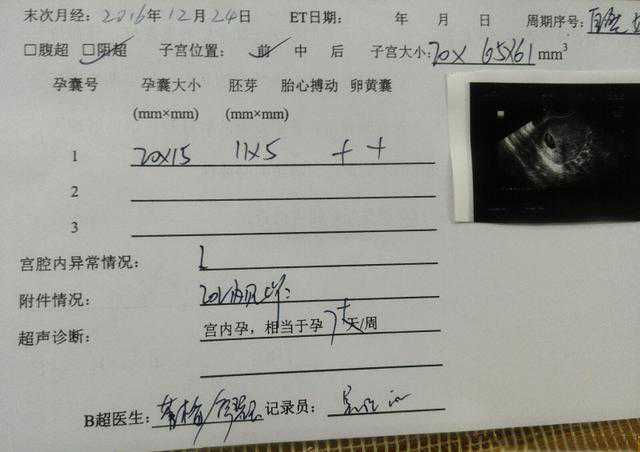 末次月经：2016年12月24日 ET日期： 年 月 日 周期序号：自然
□腹超 ☑阴超 子宫位置： 前 中 后 子宫大小：70×65×61mm³
孕囊号 孕囊大小 胚芽 胎心搏动 卵黄囊
(mm×mm) (mm×mm)
1 20×15 11×5 + +
2
3
宫腔内异常情况：
附件情况：
超声诊断： 宫内孕，相当于孕7+天/周
B超医生： 记录员：